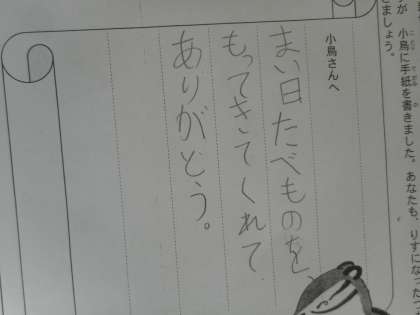 小鳥に手紙を書きました。あなたも、りすになったつ
きましょう。
小鳥さんへ
まい日、たべものを、
もってきてくれて
ありがとう。